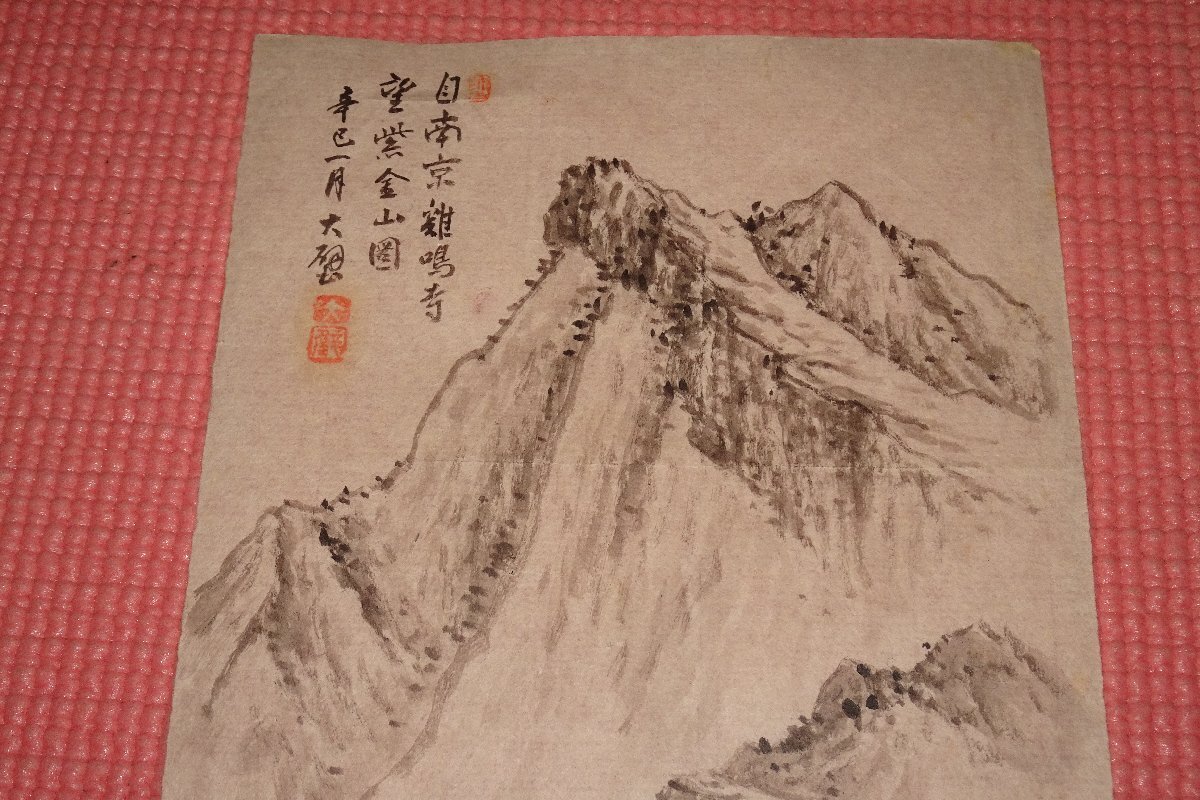 自南京雞鳴寺
望紫金山圖
辛巳一月大壑